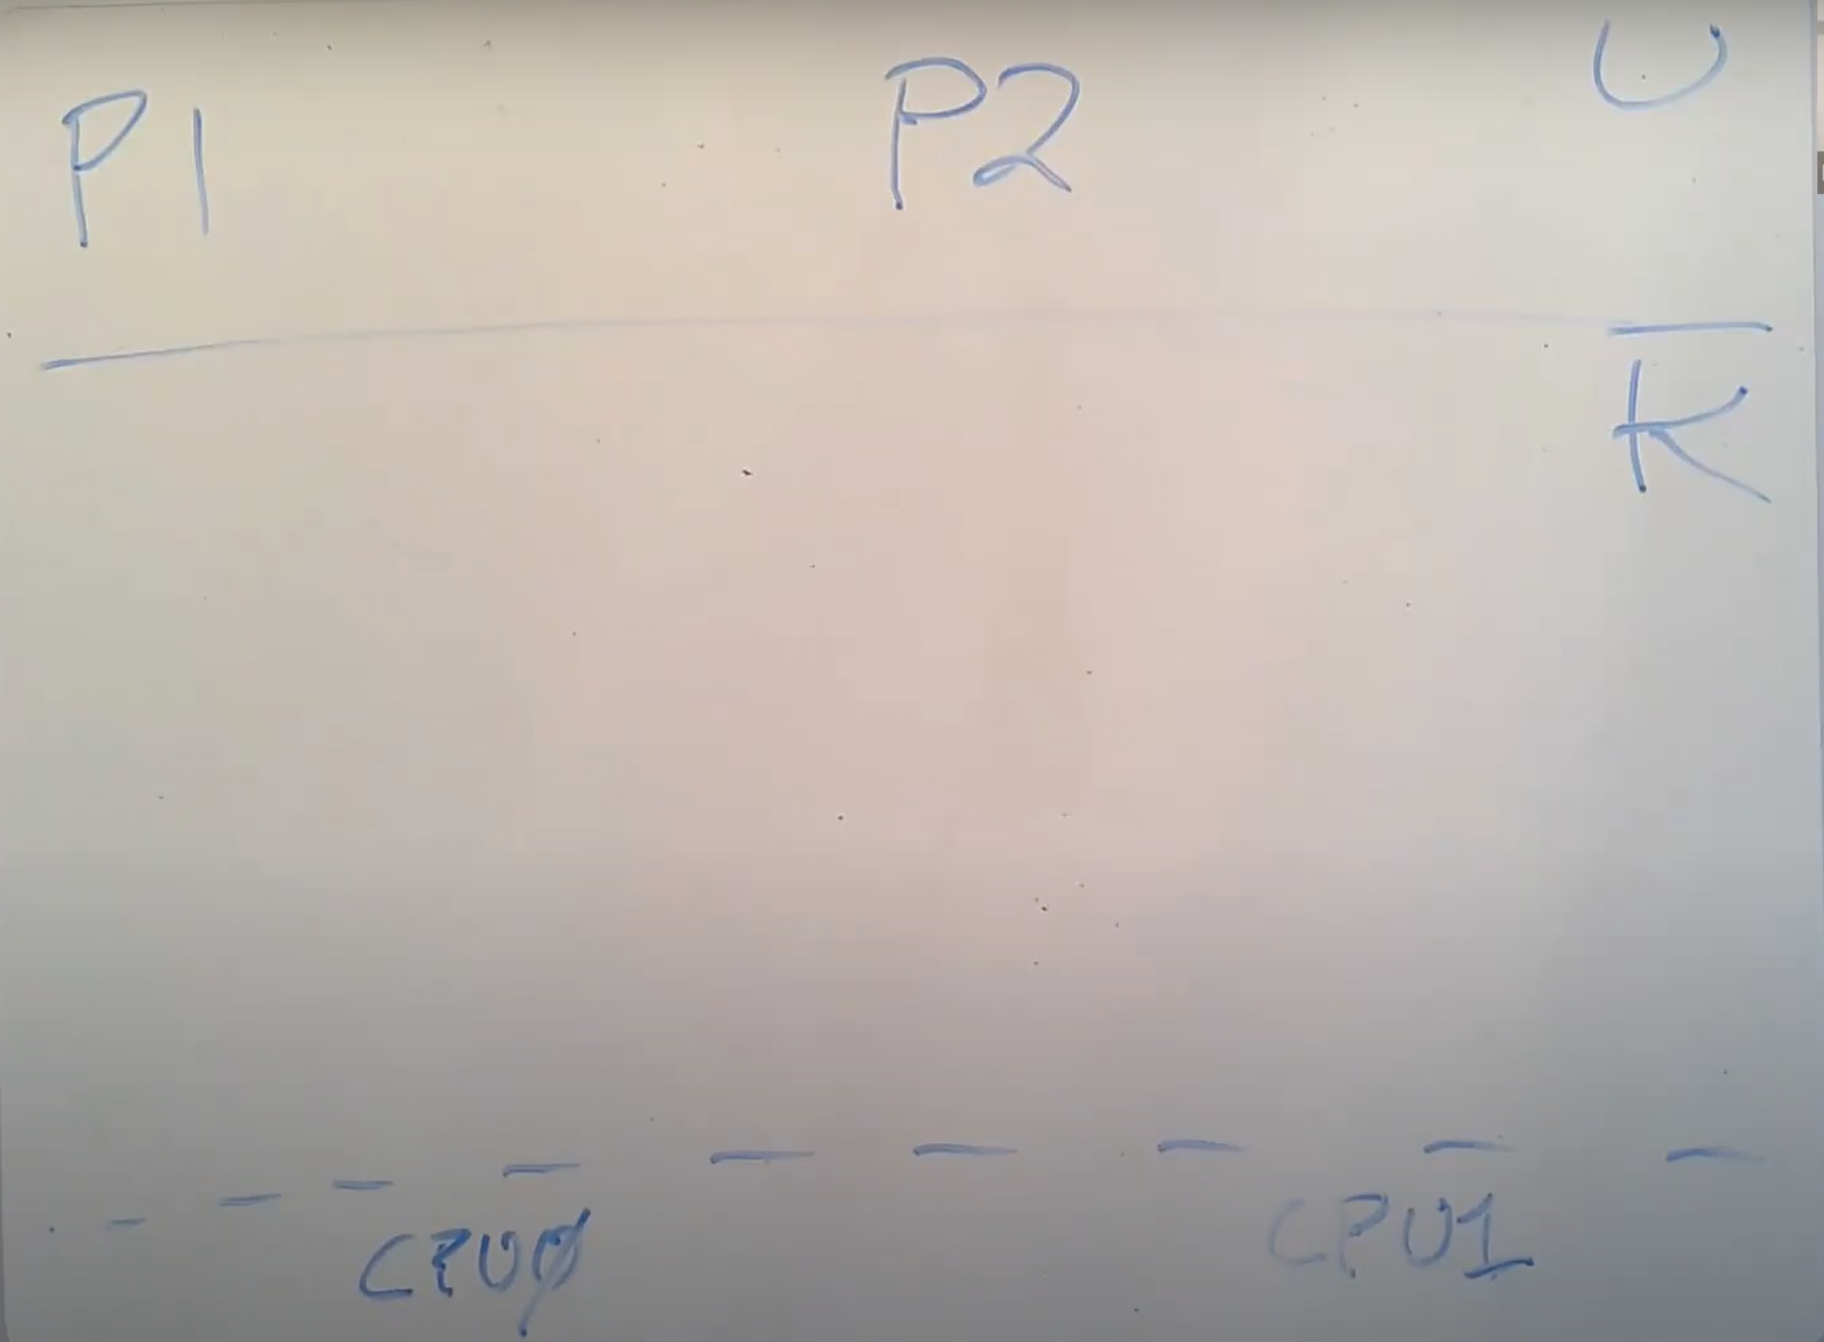 P1 P2 U
K
CPU0 CPU1